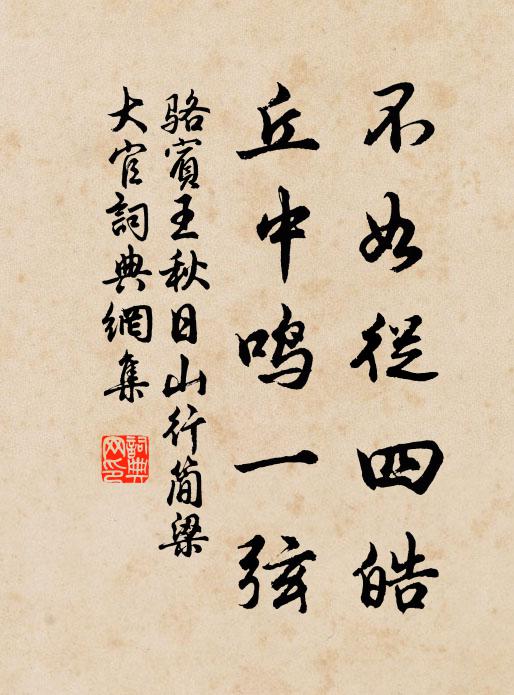 不如從四皓
丘中鳴一弦
駱賓王秋日山行簡梁
大官詞典網集
詞典
网印